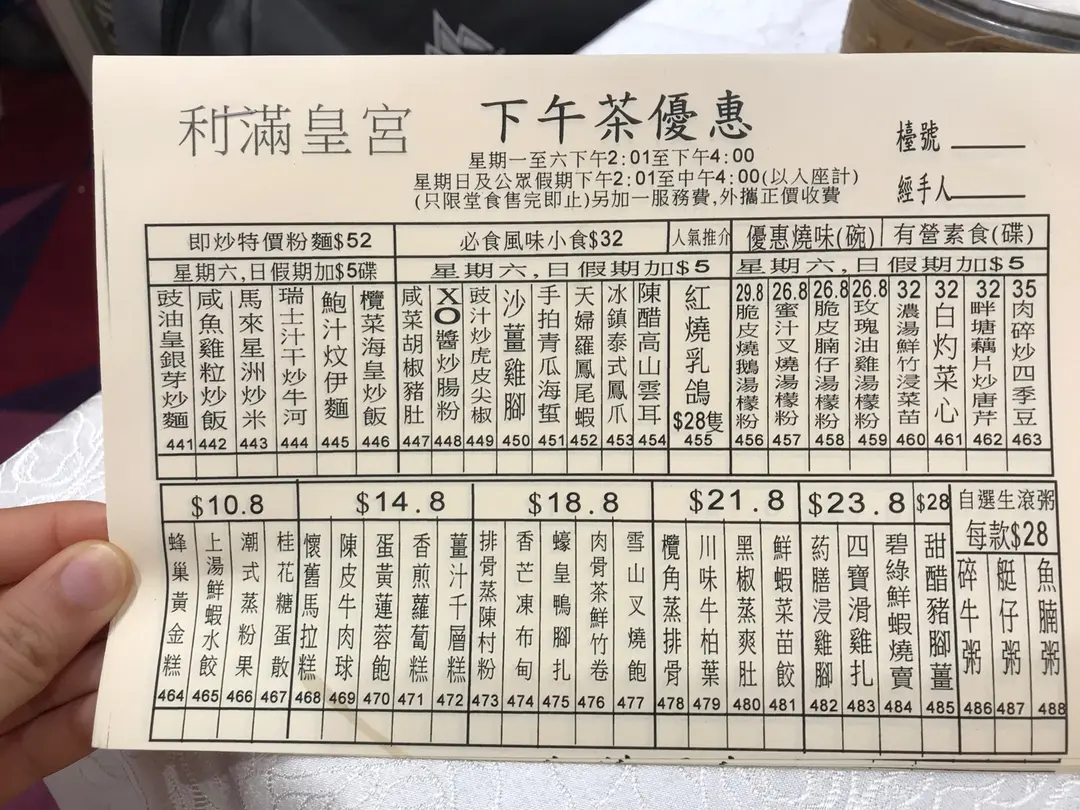 利滿皇宮
下午茶優惠
星期一至六下午2:01至下午4:00
星期日及公眾假期下午2:01至中午4:00(以入座計)
(只限堂食售完即止)另加一服務費,外攜正價收費
檯號
經手人
即炒特價粉麵$52
必食風味小食$32
人氣推介
優惠燒味(碗)
有營素食(碟)
星期六,日假期加$5碟
星期六,日假期加$5
星期六,日假期加$5
豉油皇銀芽炒麵 441
咸魚雞粒炒飯 442
馬來星洲炒米 443
瑞士汁干炒牛河 444
鮑汁炆伊麵 445
欖菜海皇炒飯 446
咸菜胡椒豬肚 447
XO醬炒腸粉 448
豉汁炒虎皮尖椒 449
沙薑雞腳 450
手拍青瓜海蜇 451
天婦羅鳳尾蝦 452
冰鎮泰式鳳爪 453
陳醋高山雲耳 454
紅燒乳鴿 $28隻 455
29.8 脆皮燒鵝湯檬粉 456
26.8 蜜汁叉燒湯檬粉 457
26.8 脆皮腩仔湯檬粉 458
26.8 玫瑰油雞湯檬粉 459
32 濃湯鮮竹浸菜苗 460
32 白灼菜心 461
32 畔塘藕片炒唐芹 462
35 肉碎炒四季豆 463
$10.8
蜂巢黃金糕 464
上湯鮮蝦水餃 465
潮式蒸粉果 466
桂花糖蛋散 467
$14.8
懷舊馬拉糕 468
陳皮牛肉球 469
蛋黃蓮蓉飽 470
香煎蘿蔔糕 471
薑汁千層糕 472
$18.8
排骨蒸陳村粉 473
香芒凍布甸 474
蠔皇鴨腳扎 475
肉骨茶鮮竹卷 476
雪山叉燒飽 477
$21.8
欖角蒸排骨 478
川味牛柏葉 479
黑椒蒸爽肚 480
鮮蝦菜苗餃 481
$23.8
药膳浸雞腳 482
四寶滑雞扎 483
碧綠鮮蝦燒賣 484
$28
甜醋豬腳薑 485
自選生滾粥
每款$28
碎牛粥 486
艇仔粥 487
魚腩粥 488